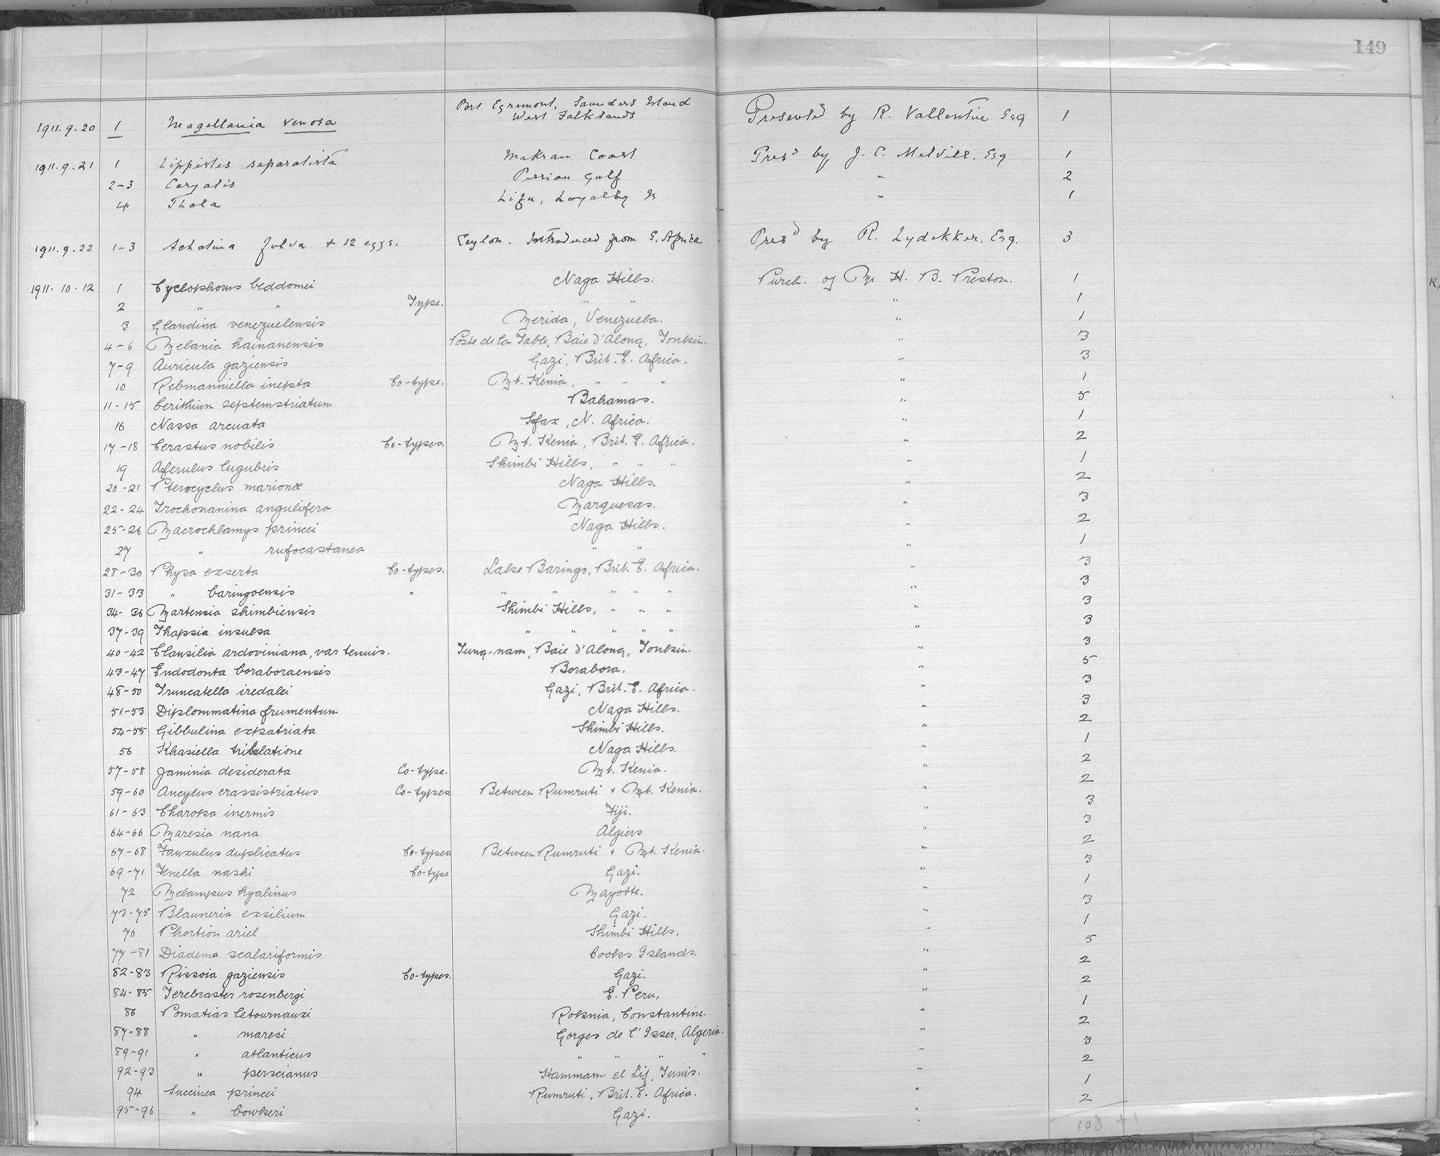 149
Port Egremont, Saunders Island
1911.9.20 1 Magellania venosa West Falklands Presented by R. Vallentin Esq 1
1911.9.21 1 Lippistes separatista Mekran Coast Presd by J. C. Melvill, Esq 1
2-3 Persian Gulf " 2
4 Thala Lifu, Loyalty Is " 1
1911.9.22 1-3 Achatina fulva + 12 eggs. Ceylon. Introduced from E. Africa. Presd by R. Lydekker, Esq. 3
1911.10.12 1 Cyclophorus beddomei Naga Hills. Purch. of Mr H. B. Preston. 1
2 " " Type. " " " 1
3 Glandina venezuelensis Merida, Venezuela. " 1
4-6 Melania hainanensis Poste de la Table, Baie d'Along, Tonkin. " 3
7-9 Auricula gaziensis Gazi, Brit. E. Africa. " 3
10 Rebmanniella inepta Co-type. Mt. Kenia, " " " " 1
11-15 Cerithium septemstriatum Bahamas. " 5
16 Nassa arcuata Sfax, N. Africa. " 1
17-18 Cerastus nobilis Co-types. Mt. Kenia, Brit. E. Africa. " 2
19 lugubris Shimbi Hills, " " " " 1
20-21 Pterocyclus marionae Naga Hills. " 2
22-24 Trochonanina angulifera Marquesas. " 3
25-26 Macrochlamys princei Naga Hills. " 2
27 " rufocastanea " " " 1
28-30 Physa exserta Co-types. Lake Baringo, Brit. E. Africa. " 3
31-33 " baringoensis " " " " " " " 3
34-36 Martensia shimbiensis Shimbi Hills, " " " " 3
37-39 Thapsia insulsa " " " " " " 3
40-42 Clausilia ardoviniana, var tenuis. Tung-nam, Baie d'Along, Tonkin. " 3
43-47 Endodonta boraboraensis Borabora. " 5
48-50 Truncatella iredalei Gazi, Brit. E. Africa. " 3
51-53 Diplommatina frumentum Naga Hills. " 3
54-55 Gibbulina expatriata Shimbi Hills. " 2
56 Khasiella tribulatione Naga Hills. " 1
57-58 Jaminia desiderata Co-type. Mt. Kenia. " 2
59-60 Ancylus crassistriatus Co-types Between Rumruti & Mt. Kenia. " 2
61-63 Charopa inermis Fiji. " 3
64-66 Maresia nana Algiers " 3
67-68 Fauxulus duplicatus Co-types Between Rumruti & Mt. Kenia. " 2
69-71 Ennella nashi Co-type Gazi. " 3
72 Melampus hyalinus Mayotte. " 1
73-75 Blauneria exsilium Gazi. " 3
76 Phortion ariel Shimbi Hills. " 1
77-81 Diadema scalariformis Cooks Islands. " 5
82-83 Rissoia gaziensis Co-types. Gazi. " 2
84-85 Terebraster rosenbergi E. Peru. " 2
86 Pomatias letourneuxi Roknia, Constantine. " 1
87-88 " maresi Gorges de l'Isser, Algeria. " 2
89-91 " atlanticus " " " " " 3
92-93 " perseianus Hammam el Lif, Tunis. " 2
94 Succinea princei Rumruti, Brit. E. Africa. " 1
95-96 " bowkeri Gazi. " 2
103 + 1